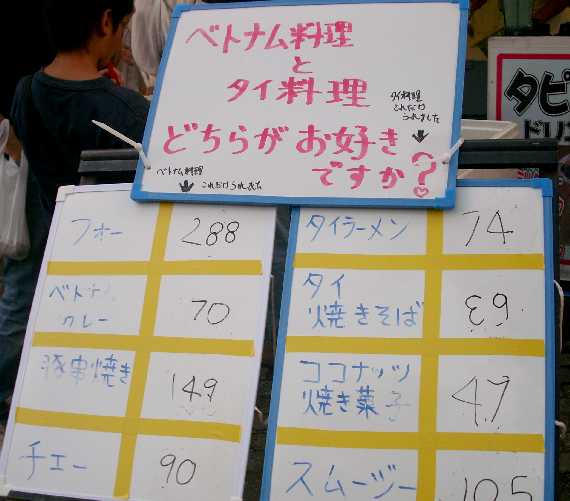 ベトナム料理
と
タイ料理
どちらがお好き
ですか?♡
タイ料理
これだけ
うれました
↓
ベトナム料理
↓ これだけうれました
フォー 288
ベトナムカレー 70
豚串焼き 149
チェー 90
タイラーメン 74
タイ
焼きそば 63
ココナッツ
焼き菓子 47
スムージー 105
タピ
ドリ